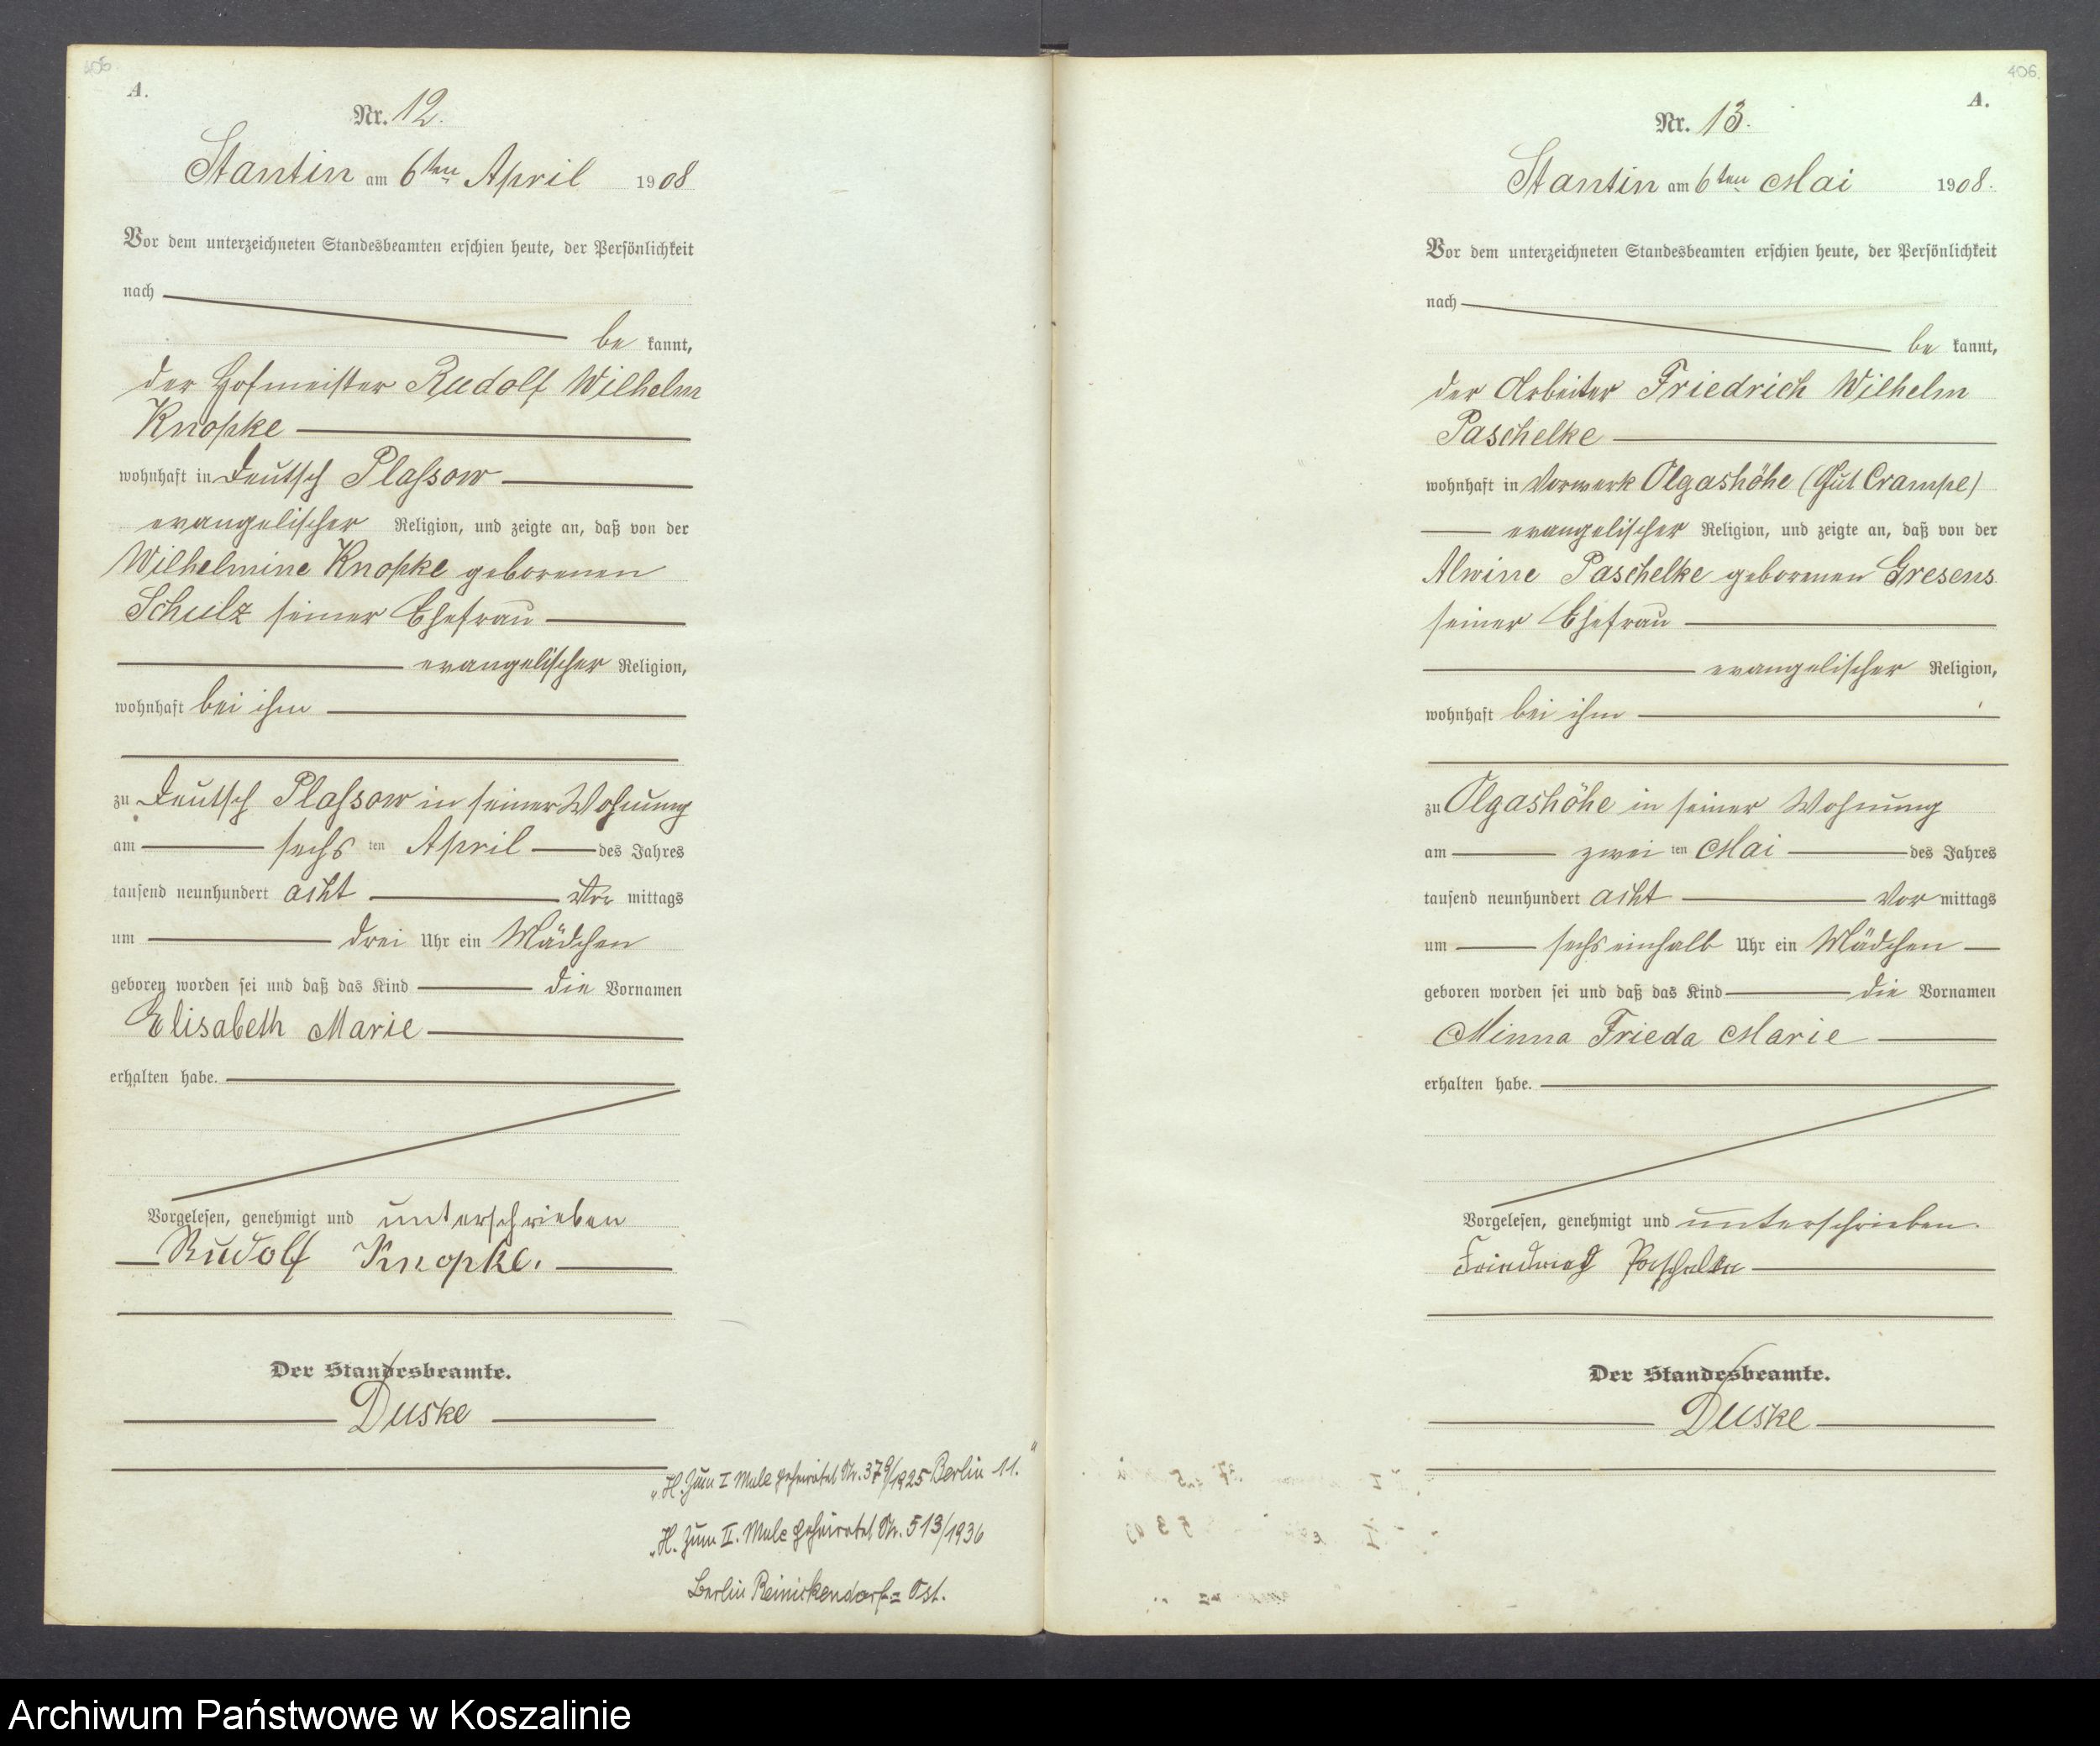 A.
Nr. 12.
Stantin am 6ten April 1908
Vor dem unterzeichneten Standesbeamten erschien heute, der Persönlichkeit
nach
be kannt,
der Hofmeister Rudolf Wilhelm
Knopke
wohnhaft in Deutsch Plassow
evangelischer Religion, und zeigte an, daß von der
Wilhelmine Knopke geborenen
Schulz seiner Ehefrau
evangelischer Religion,
wohnhaft bei ihm
zu Deutsch Plassow in seiner Wohnung
am sechs ten April des Jahres
tausend neunhundert acht Vor mittags
um drei Uhr ein Mädchen
geboren worden sei und daß das Kind die Vornamen
Elisabeth Marie
erhalten habe.
Vorgelesen, genehmigt und unterschrieben
Rudolf Knopke.
Der Standesbeamte.
Duske
"H. Zum I Male geheiratet Nr. 379/1925 Berlin 11."
"H. Zum II. Male geheiratet Nr. 513/1936
Berlin Reinickendorf= Ost.
406.
A.
Nr. 13.
Stantin am 6ten Mai 1908.
Vor dem unterzeichneten Standesbeamten erschien heute, der Persönlichkeit
nach
be kannt,
der Arbeiter Friedrich Wilhelm
Paschelke
wohnhaft in Vorwerk Olgashöhe (Gut Crampe)
evangelischer Religion, und zeigte an, daß von der
Alwine Paschelke geborenen Gresens
seiner Ehefrau
evangelischer Religion,
wohnhaft bei ihm
zu Olgashöhe in seiner Wohnung
am zwei ten Mai des Jahres
tausend neunhundert acht Vor mittags
um sechs einhalb Uhr ein Mädchen
geboren worden sei und daß das Kind die Vornamen
Minna Frieda Marie
erhalten habe.
Vorgelesen, genehmigt und unterschrieben.
Friedrich Paschelke
Der Standesbeamte.
Duske
Archiwum Państwowe w Koszalinie